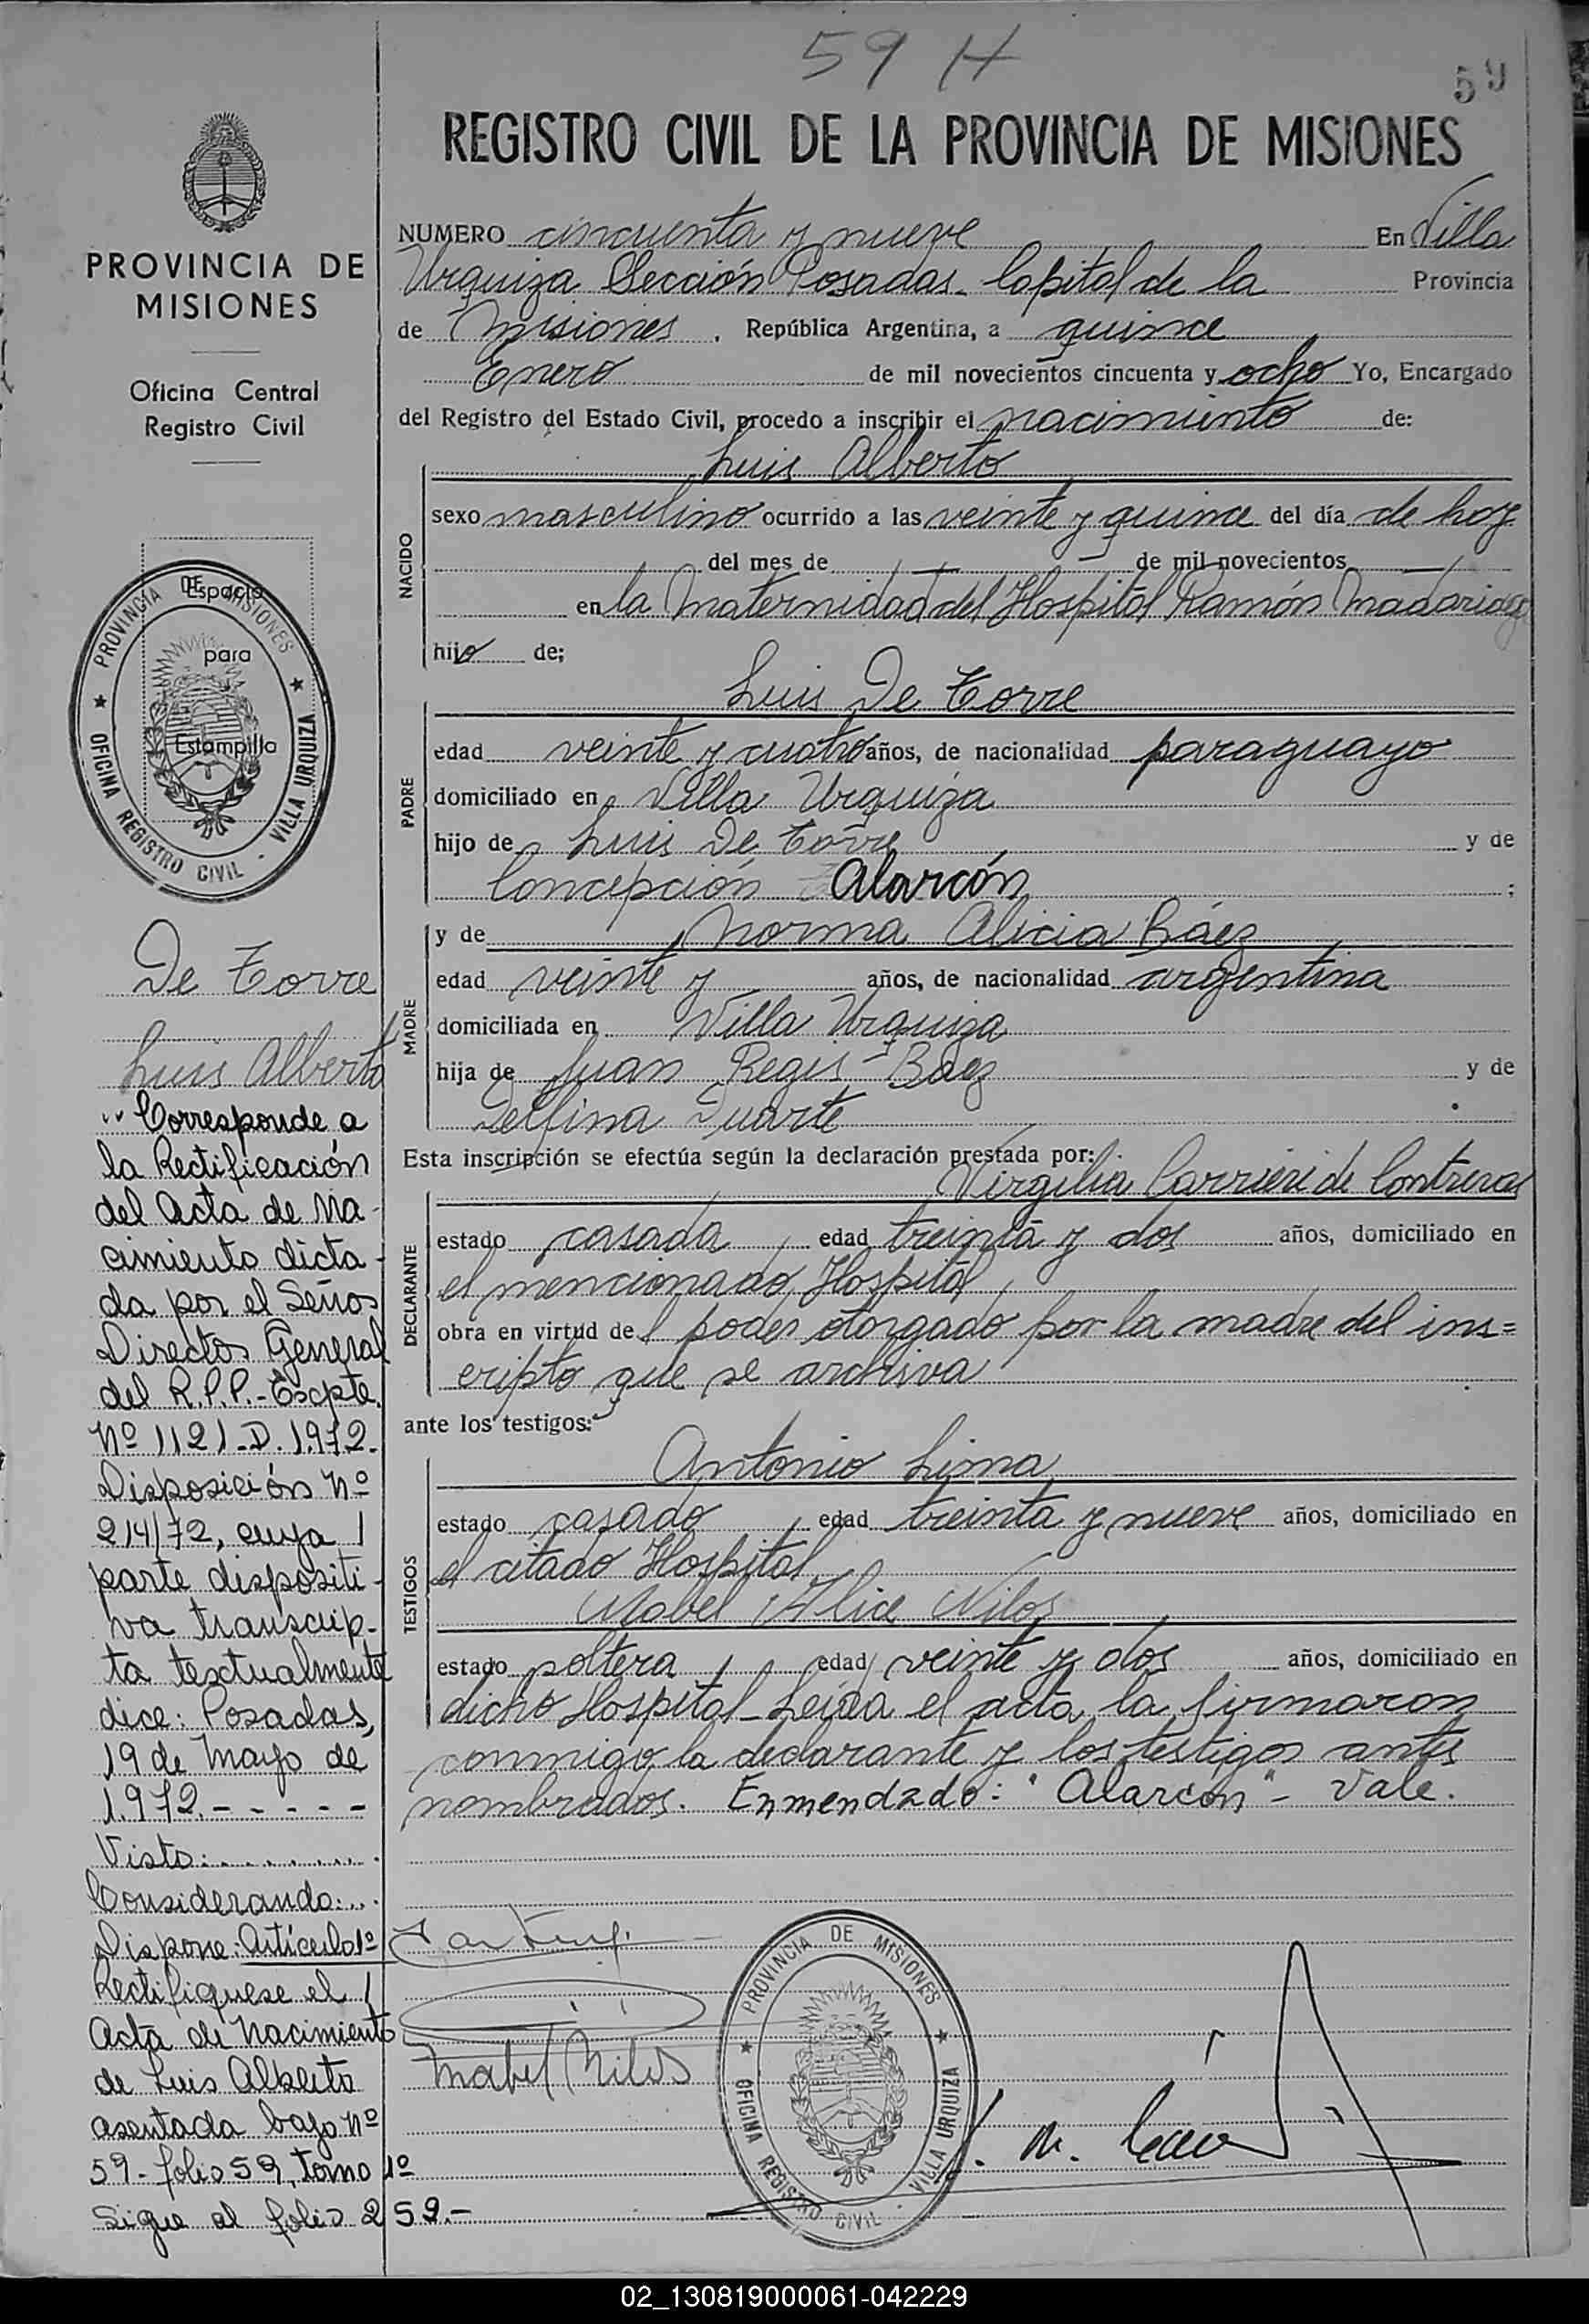 59 H
59
REGISTRO CIVIL DE LA PROVINCIA DE MISIONES
PROVINCIA DE
MISIONES
Oficina Central
Registro Civil
PROVINCIA DE MISIONES
OFICINA REGISTRO CIVIL - VILLA URQUIZA
Espacio
para
Estampilla
De Torre
Luis Alberto
" Corresponde a
la Rectificación
del Acta de Na-
cimiento dicta-
da por el Señor
Director General
del R.P.P.- Escpte.
Nº 1121-D.1.972.
Disposición Nº
214/72, cuya /
parte dispositi-
va transcrip-
ta textualmente
dice: Posadas,
19 de Mayo de
1.972.- - - - -
Visto: . . . . . . .
Considerando: . . .
Dispone: Artículo 1º
Rectifíquese el /
Acta de Nacimiento
de Luis Alberto
asentada bajo Nº
59- folio 59, Tomo 1º
Sigue al folio 259.-
NUMERO cincuenta y nueve En Villa
Urquiza Sección Posadas - Capital de la Provincia
de Misiones . República Argentina, a quince
Enero de mil novecientos cincuenta y ocho Yo, Encargado
del Registro del Estado Civil, procedo a inscribir el nacimiento de:
NACIDO
Luis Alberto
sexo masculino ocurrido a las veinte y quince del día de hoy
del mes de — de mil novecientos —
en la Maternidad del Hospital Ramón Madariaga
hijo de;
PADRE
Luis De Torre
edad veinte y cuatro años, de nacionalidad paraguayo
domiciliado en Villa Urquiza
hijo de Luis De Torre y de
Concepción Alarcón ;
MADRE
y de Norma Alicia Báez
edad veinte y años, de nacionalidad argentina
domiciliada en Villa Urquiza
hija de Juan Regis Báez y de
Delfina Duarte .
Esta inscripción se efectúa según la declaración prestada por:
DECLARANTE
Virgilia Carrieri de Contreras
estado casada, edad treinta y dos años, domiciliado en
el mencionado Hospital,
obra en virtud del poder otorgado por la madre del ins=
cripto que se archiva .
ante los testigos:
TESTIGOS
Antonio Lima,
estado casado, edad treinta y nueve años, domiciliado en
el citado Hospital,
Mabel Alice Nilos
estado soltera, edad veinte y dos años, domiciliado en
dicho Hospital - Leída el acta, la firmaron
conmigo, la declarante y los testigos antes
nombrados. Enmendado: "Alarcón" - Vale.
Mabel Nilos
PROVINCIA DE MISIONES
OFICINA REGISTRO CIVIL - VILLA URQUIZA
02_130819000061-042229